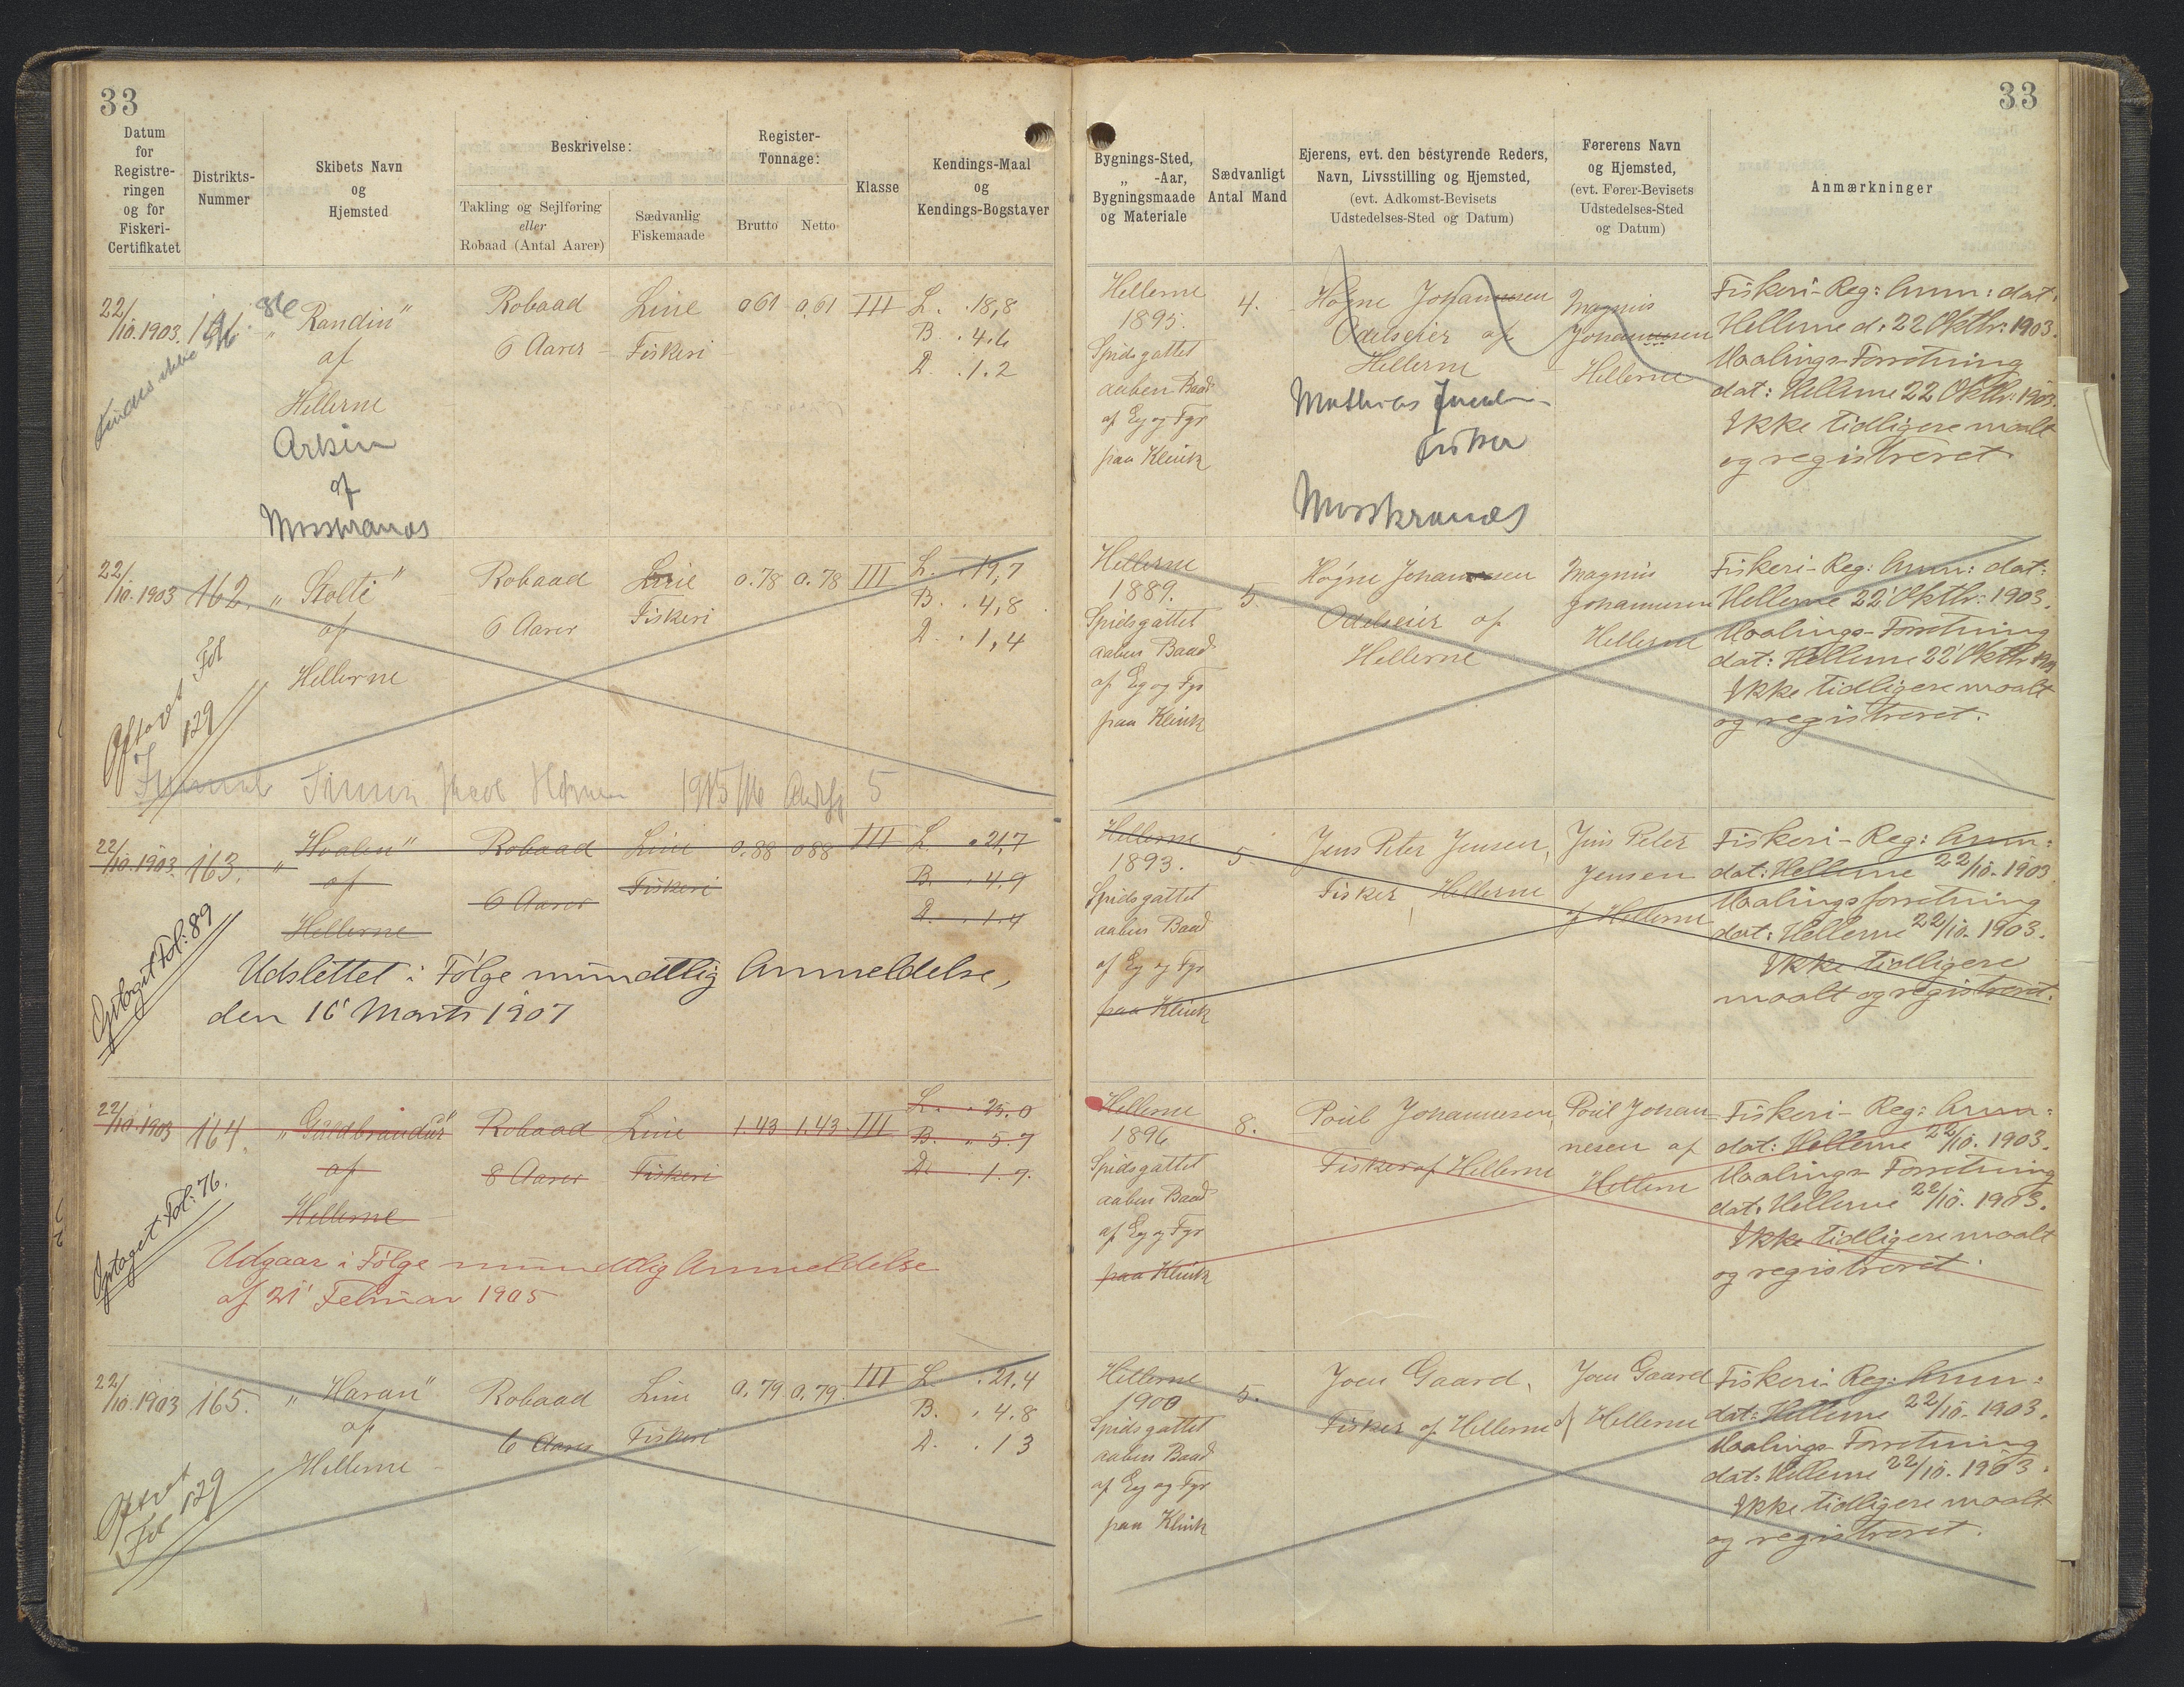 33
33
Datum for Registreringen og for Fiskeri-Certifikatet
Distrikts-Nummer
Skibets Navn og Hjemsted
Beskrivelse:
Takling og Sejlføring eller Robaad (Antal Aarer)
Sædvanlig Fiskemaade
Register-Tonnage:
Brutto
Netto
Klasse
Kendings-Maal og Kendings-Bogstaver
Bygnings-Sted, „ -Aar, Bygningsmaade og Materiale
Sædvanligt Antal Mand
Ejerens, evt. den bestyrende Reders, Navn, Livsstilling og Hjemsted, (evt. Adkomst-Bevisets Udstedelses-Sted og Datum)
Førerens Navn og Hjemsted, (evt. Fører-Bevisets Udstedelses-Sted og Datum)
Anmærkninger
22/10.1903. 161. „Randin" Robaad Line 0 61 0,61 III L. . 18,8
af 6 Aarer - Fiskeri B. . 4.6
Hellerne D. . 1.2
af
Hellerne 4. Høgne Johannesen Magnus Fiskeri-Reg: Anm: dat:
1895. Odelseier af Johannesen Hellerne d. 22 Oktbr: 1903.
Spidsgattet Hellerne Hellerne Maalings-Forretning
aaben Baad Mathias dat: Hellerne 22 Oktbr: 1903.
af Eg og Fyr Fisker Ikke tidligere maalt
paa Klink og registreret.
22/10.1903 162. „Stolti" Robaad Line 0.78 0.78 III L. . 19,7
af 6 Aarer Fiskeri B. . 4,8
Hellerne D. . 1,4
Fol 129
Hellerne 5. Høgne Johannesen Magnus Fiskeri-Reg: Anm: dat:
1889. Odelseier af Johannesen Hellerne 22' Oktbr: 1903.
Spidsgattet Hellerne Hellerne Maalings-Forretning
aaben Baad dat: Hellerne 22' Oktbr
af Eg og Fyr Ikke tidligere maalt
paa Klink og registreret.
Jacob 1915/16 5
22/10.1903. 163. „Hvalen" Robaad Line 0.88 0 88 III L. . 21,7
af 6 Aarer Fiskeri B. . 4.9
Hellerne D. . 1.4
Optaget Fol: 89
Udslettet i Følge mundtlig Anmeldelse,
den 16' Marts 1907
Hellerne 5. Jens Peter Jensen, Jens Peter Fiskeri-Reg: Anm:
1893. Fisker, Hellerne Jensen dat: Hellerne 22/10. 1903.
Spidsgattet af Hellerne Maalingsforretning
aaben Baad dat: Hellerne 22/10. 1903.
af Eg og Fyr Ikke tidligere
paa Klink maalt og registreret.
22/10.1903 164. „Guldbrandur" Robaad Line 1.43 1.43. III L. . 25.0
af 8 Aarer Fiskeri B. . 5.7
Hellerne D. . 1.7.
Optaget Fol: 76.
Udgaar i Følge mundtlig Anmeldelse
af 21' Februar 1905
Hellerne 8. Poul Johannesen, Poul Johan- Fiskeri-Reg: Anm:
1896 Fisker af Hellerne nesen af dat: Hellerne 22/10. 1903.
Spidsgattet Hellerne Maalings-Forretning
aaben Baad dat. Hellerne 22/10. 1903.
af Eg og Fyr Ikke tidligere maalt
paa Klink og registreret.
22/10.1903 165. „Havan" Robaad Line 0.79 0.79. III L. . 21,4
af 6 Aarer Fiskeri B. . 4.8
Hellerne D. . 1 3
Fol 129
Hellerne 5. Joen Gaard, Joen Gaard Fiskeri-Reg: Anm:
1900 Fisker af Hellerne af Hellerne dat: Hellerne 22/10. 1903.
Spidsgattet Maalings-Forretning
aaben Baad dat: Hellerne 22/10. 1903.
af Eg og Fyr Ikke tidligere maalt
paa Klink og registreret.